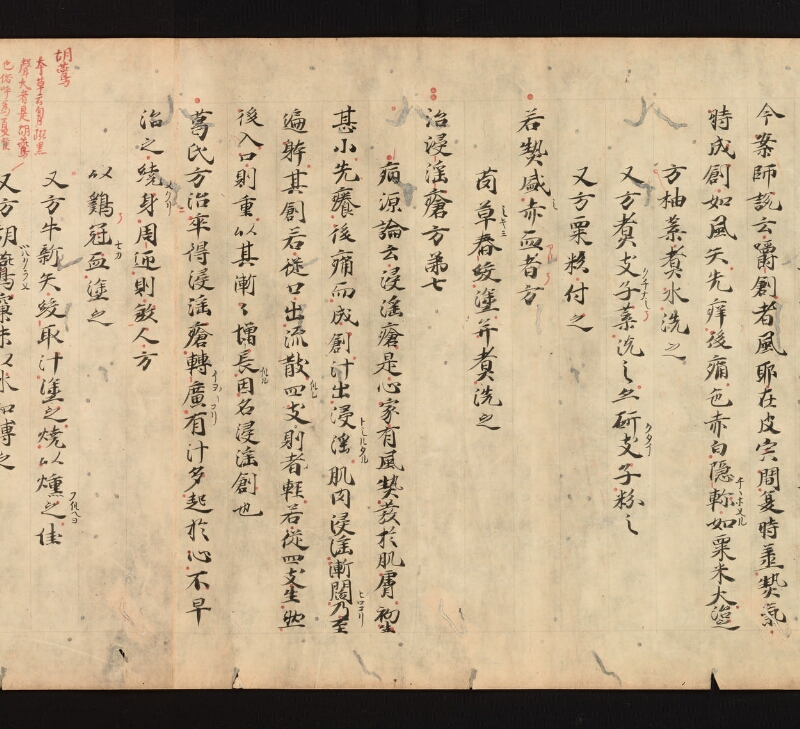 今案師説云嚼創者風耶在皮宍間夏時基熱氣
時成創如風矢先痒後痛色赤白隠軫如粟米大治
方柚葉煮水洗之
又方煮支子葉洗之又研支子粉之
又方粟粉付之
若熱盛赤血者方
茵草舂絞塗并煮洗之
治浸淫瘡方第七
病源論云浸淫瘡是心家有風熱發於肌膚初生
甚小先癢後痛而成創汁出浸淫肌肉浸淫漸闊乃至
遍躰其創若從口出流散四支則者軽若從四支生然
後入口則重以其漸々増長因名浸淫創也
葛氏方治卒得浸淫瘡轉廣有汁多起於心不早
治之繞身周迊則敘人方
以鷄冠血塗之
又方牛新矢絞取汁塗之燒以燻之佳
又方胡鷰窠末以水和傅之
胡鷰
本草云胷斑黒
聲大者是胡鷰
也俗呼為夏候